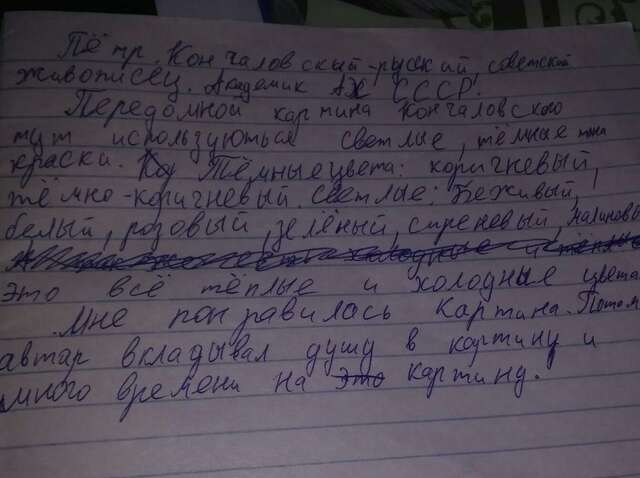 Пётр. Кончаловский-руский, советский
живописец. Академик АХ СССР.
Передомной картина Кончаловского
тут используються светлые, тёмные тона
краски. Ка Тёмные цвета: коричневый,
тёмно-коричневый. светлые: Беживый,
белый, розовый, зелёный, сиреневый, малиновый
холодные и тёплые
это всё тёплые и холодные цвета.
Мне понравилась картина. Потом
автар вкладывал душу в картину и
много времени на это картину.